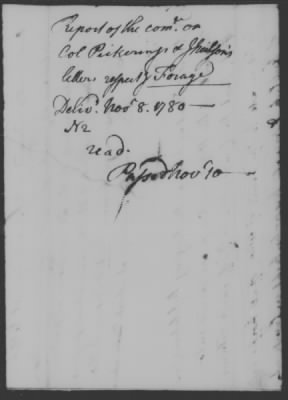 Report of the com.e on
Col Pickerings &
letters respect.g Forage
Deliv.d Nov.r 8. 1780 —
N 2
read.
Passed Nov.r 10